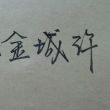 金城许